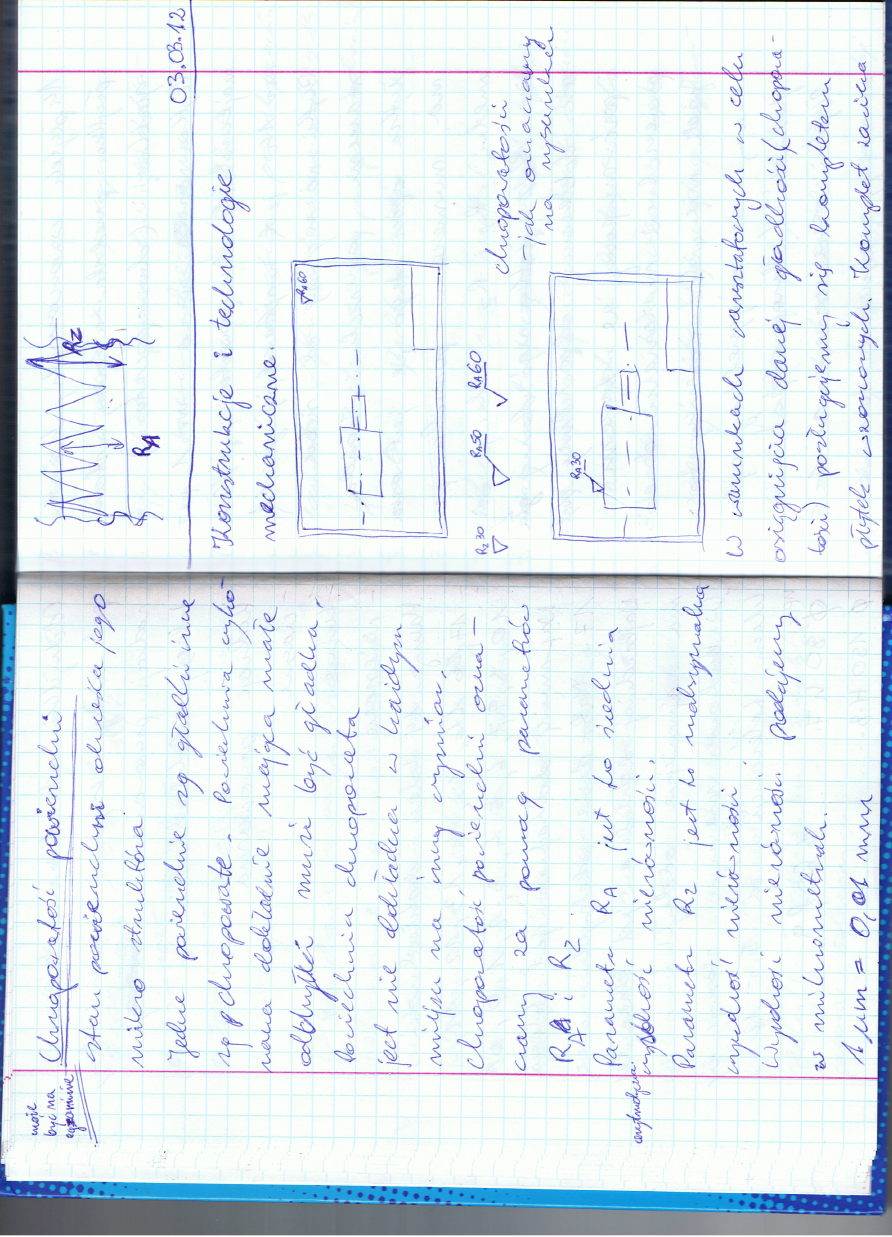 może
być na
egzaminie
Chropowatość powierzchni
stan powierzchni określa jego
mikro struktóra.
Jedne powierzchnie są gładkie inne
są chropowate. Powierzchnia wyko-
nana dokładnie mająca małe
odchyłki musi być gładka.
Powierzchnia chropowata
jest nie dokładna w każdym
miejscu ma inny wymiar.
Chropowatość powierzchni ozna-
czamy za pomocą parametrów
RA i RZ.
Parametr RA jest to średnia
arytmetyczna wysokość nierówności.
Parametr RZ jest to maksymalna
wysokość nierówności
Wysokość nierówności podajemy
w mikrometrach.
1 µm = 0,01 mm
RZ
RA
03.03.12
Konstrukcje i technologie
mechaniczne.
RA60
RZ30 RA50 RA60
chropowatości
-jak oznaczamy
na rysunkach
RA30
W warunkach warsztatowych w celu
osiągnięcia danej gładkości (chropowa-
tości) posługujemy się kompletem
płytek wzorcowych. Komplet zawiera